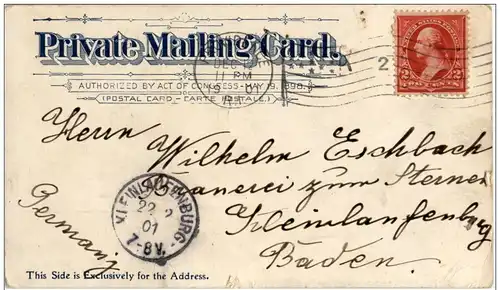 Private Mailing Card.
AUTHORIZED BY ACT OF CONGRESS-MAY 19, 1898.
(POSTAL CARD - CARTE POSTALE.)
DEC
11 PM
19 01
2
2 2
TWO CENTS
Herrn Wilhelm Eschbach
Brauerei zum Sternen
Kleinlaufenburg
Baden.
Germany
KLEINLAUFENBURG.
22
01
7-8V.
This Side is Exclusively for the Address.